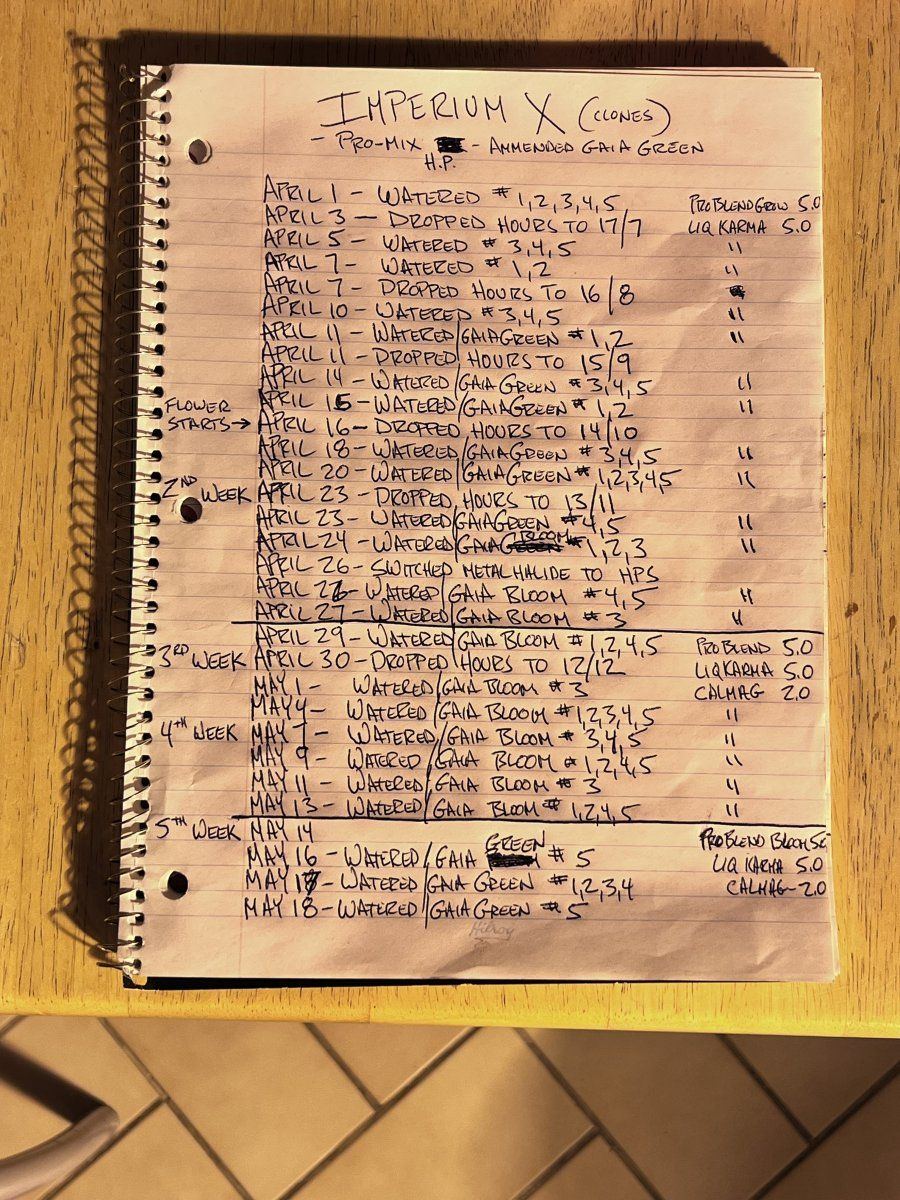 IMPERIUM X (CLONES)
- PRO-MIX H.P. - AMMENDED GAIA GREEN
APRIL 1 - WATERED # 1,2,3,4,5 PRO BLEND GROW 5.0
APRIL 3 - DROPPED HOURS TO 17/7 LIQ KARMA 5.0
APRIL 5 - WATERED # 3,4,5 "
APRIL 7 - WATERED # 1,2 "
APRIL 7 - DROPPED HOURS TO 16/8
APRIL 10 - WATERED # 3,4,5 "
APRIL 11 - WATERED/GAIA GREEN # 1,2 "
APRIL 11 - DROPPED HOURS TO 15/9
APRIL 14 - WATERED/GAIA GREEN # 3,4,5 "
APRIL 15 - WATERED/GAIA GREEN # 1,2 "
FLOWER STARTS → APRIL 16 - DROPPED HOURS TO 14/10
APRIL 18 - WATERED/GAIA GREEN # 3,4,5 "
APRIL 20 - WATERED/GAIA GREEN # 1,2,3,4,5 "
2ND WEEK APRIL 23 - DROPPED HOURS TO 13/11
APRIL 23 - WATERED/GAIA GREEN # 4,5 "
APRIL 24 - WATERED/GAIA BLOOM # 1,2,3 "
APRIL 26 - SWITCHED METAL HALIDE TO HPS
APRIL 26 - WATERED/GAIA BLOOM # 4,5 "
APRIL 27 - WATERED/GAIA BLOOM # 3 "
APRIL 29 - WATERED/GAIA BLOOM # 1,2,4,5 PRO BLEND 5.0
3RD WEEK APRIL 30 - DROPPED HOURS TO 12/12 LIQ KARMA 5.0
MAY 1 - WATERED/GAIA BLOOM # 3 CALMAG 2.0
MAY 4 - WATERED/GAIA BLOOM # 1,2,3,4,5 "
4TH WEEK MAY 7 - WATERED/GAIA BLOOM # 3,4,5 "
MAY 9 - WATERED/GAIA BLOOM # 1,2,4,5 "
MAY 11 - WATERED/GAIA BLOOM # 3 "
MAY 13 - WATERED/GAIA BLOOM # 1,2,4,5 "
5TH WEEK MAY 14 PRO BLEND BLOOM 5.0
MAY 16 - WATERED/GAIA GREEN # 5 LIQ KARMA 5.0
MAY 17 - WATERED/GAIA GREEN # 1,2,3,4 CALMAG - 2.0
MAY 18 - WATERED/GAIA GREEN # 5
Hilroy